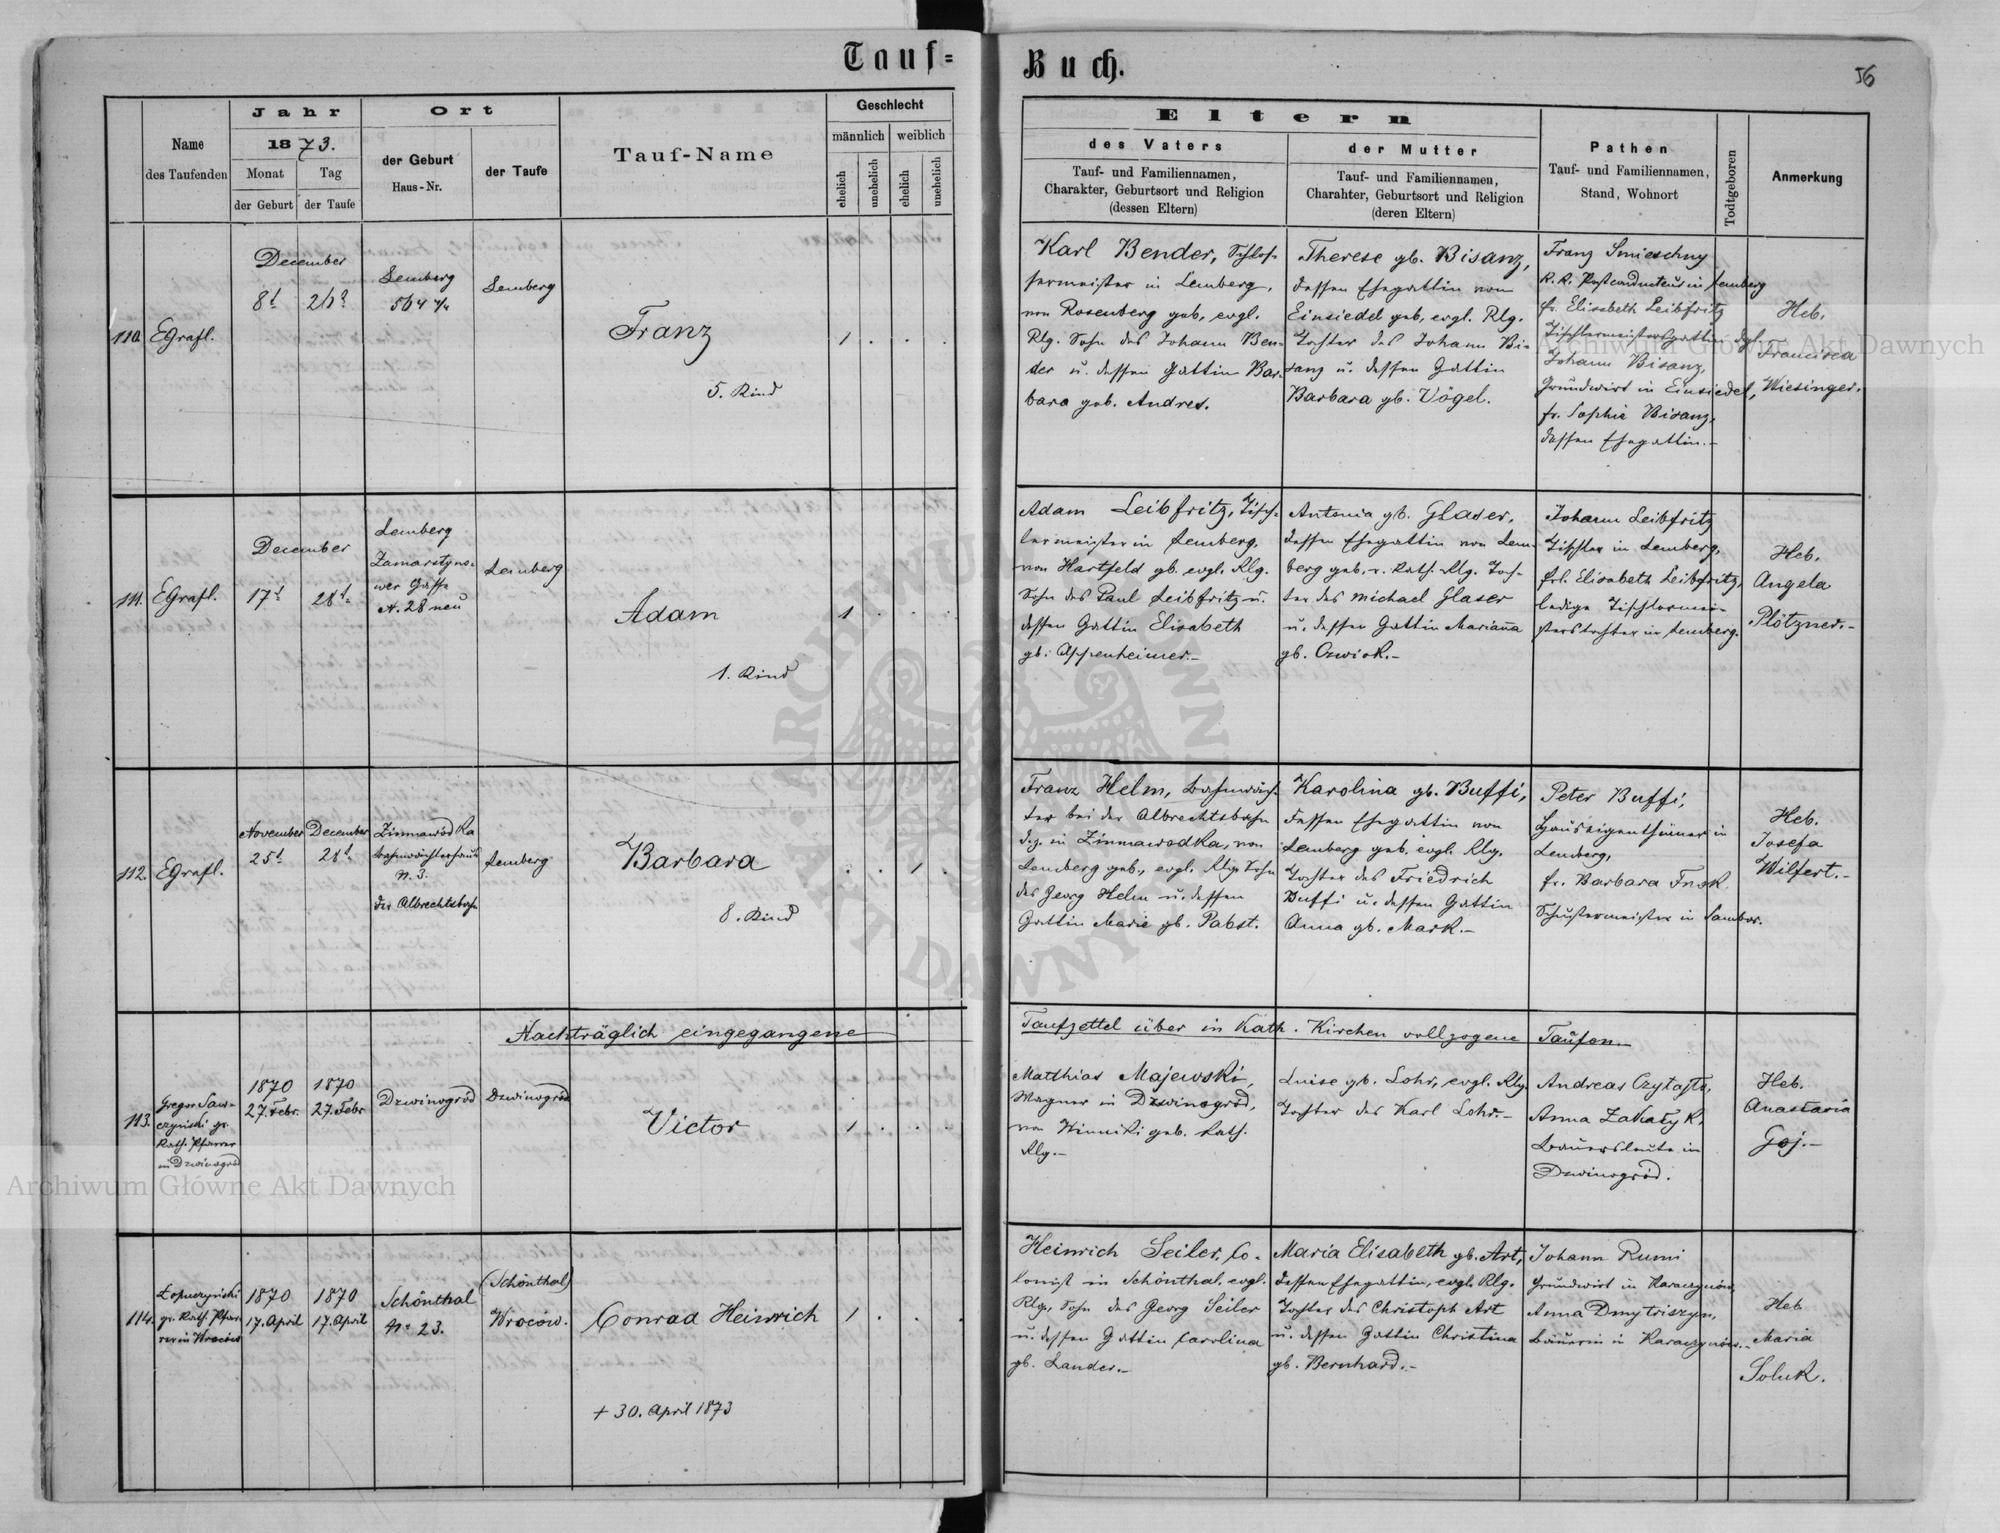 Tauf=
Buch.
56
Name
des Taufenden
Jahr
1873.
Monat
Tag
der Geburt
der Taufe
Ort
der Geburt
Haus-Nr.
der Taufe
Tauf-Name
Geschlecht
männlich
weiblich
ehelich
unehelich
ehelich
unehelich
Eltern
des Vaters
Tauf- und Familiennamen,
Charakter, Geburtsort und Religion
(dessen Eltern)
der Mutter
Tauf- und Familiennamen,
Charahter, Geburtsort und Religion
(deren Eltern)
Pathen
Tauf- und Familiennamen,
Stand, Wohnort
Todtgeboren
Anmerkung
110.
EGrafl.
December
8t
Lemberg
564 4/4
Lemberg
Franz
5. Kind
1
Karl Bender, Schlos-
sermeister in Lemberg,
von Rosenberg geb, evgl.
Rlg. Sohn des Johann Ben-
der u. dessen Gattin Bar-
bara geb. Andres.
Therese gb. Bisanz,
dessen Ehegattin von
Einsiedel geb, evgl. Rlg.
Tochter des Johann Bi-
sanz u. dessen Gattin
Barbara gb. Vögel.
Franz Smieschny
K. K. Postconducteur in Lemberg
fr. Elisabeth Leibfritz
Tischlermeistersgattin dgl.
Johann Bisanz,
Grundwirt in Einsiedel,
fr. Sophie Bisanz,
dessen Ehegattin.-
Heb.
Francisca
Wiesinger.
111.
EGrafl.
December
17t
28t
Lemberg
Zamarstyno-
wer Gasse
N. 28 neu
Lemberg
Adam
1. Kind
1
Adam Leibfritz, Tisch-
lermeister in Lemberg,
von Hartfeld gb. evgl. Rlg.
Sohn des Paul Leibfritz u.
dessen Gattin Elisabeth
gb: Appenheimer.-
Antonia gb. Glaser,
dessen Ehegattin von Lem-
berg geb. r. Kath. Rlg. Toch-
ter des Michael Glaser
u. dessen Gattin Marianna
gb. Ozwiok.-
Johann Leibfritz
Tischler in Lemberg,
frl. Elisabeth Leibfritz,
ledige Tischlermei-
sterstochter in Lemberg.
Heb.
Angela
Plötzner.-
112.
EGrafl.
November
25t
December
28t
Zimnawodka
Bahnwächterhaus
N. 3.
der Albrechtsbahn
Lemberg
Barbara
8. Kind
1
Franz Helm, Bahnwäch-
ter bei der Albrechtsbahn
d.z. in Zimnawodka, von
Lemberg geb., evgl. Rlg. Sohn
des Georg Helm u. dessen
Gattin Marie gb. Pabst.
Karolina gb. Buffi,
dessen Ehegattin von
Lemberg geb. evgl. Rlg.
Tochter des Friedrich
Buffi u. dessen Gattin
Anna gb. Mark.-
Peter Buffi,
Hauseigenthümer in
Lemberg,
fr. Barbara
Schustermeister in Sambor.
Heb.
Josefa
Wilfert.-
Nachträglich eingegangene
Taufzettel über in Kath. Kirchen vollzogene Taufen.-
113.
Gregor Saw-
czynski gr.
Kath. Pfarrer
in Dzwinogród
1870
27. Febr.
1870
27. Febr
Dzwinogród
Dzwinogród
Victor
1
Matthias Majewski,
Wagner in Dzwinogród,
von Winniki geb. Kath.
Rlg.-
Luise gb. Lohr, evgl. Rlg
Tochter des Karl Lohr.-
Andreas Czytajlo,
Anna Zakatyk,
Bauersleute in
Dzwinogród.
Heb.
Anastasia
Goj.-
114.
Łopuczyński
gr. Kath. Pfar-
rer in Wrocow
1870
17. April
1870
17. April
Schönthal
No 23.
(Schönthal)
Wrocow.
Conrad Heinrich
1
+ 30. April 1873
Heinrich Seiler, Co-
lonist in Schönthal, evgl.
Rlg. Sohn des Georg Seiler
u. dessen Gattin Carolina
gb. Lander.-
Maria Elisabeth gb. Art,
dessen Ehegattin, evgl. Rlg.
Tochter des Christoph Art
u. dessen Gattin Christina
gb. Bernhard.-
Johann Rumi
Grundwirt in Karaczynów,
Anna Dmytriszyn,
Bäuerin in Karaczynów.-
Heb
Maria
Soluk.
Archiwum Główne Akt Dawnych
Archiwum Główne Akt Dawnych